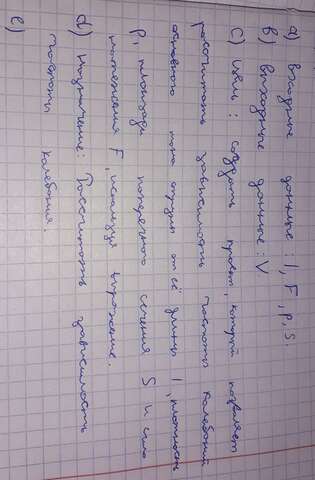 a) входные данные: l, F, p, S.
b) выходные данные: V
c) цель: создать проект, который позволяет
рассчитать зависимость частоты колебаний
основного тона струны от её длины l, плотность
p, площади поперечного сечения S и силы
натяжения F, используя выражение.
d) назначение: Рассчитать зависимость
частоты колебания.
e)